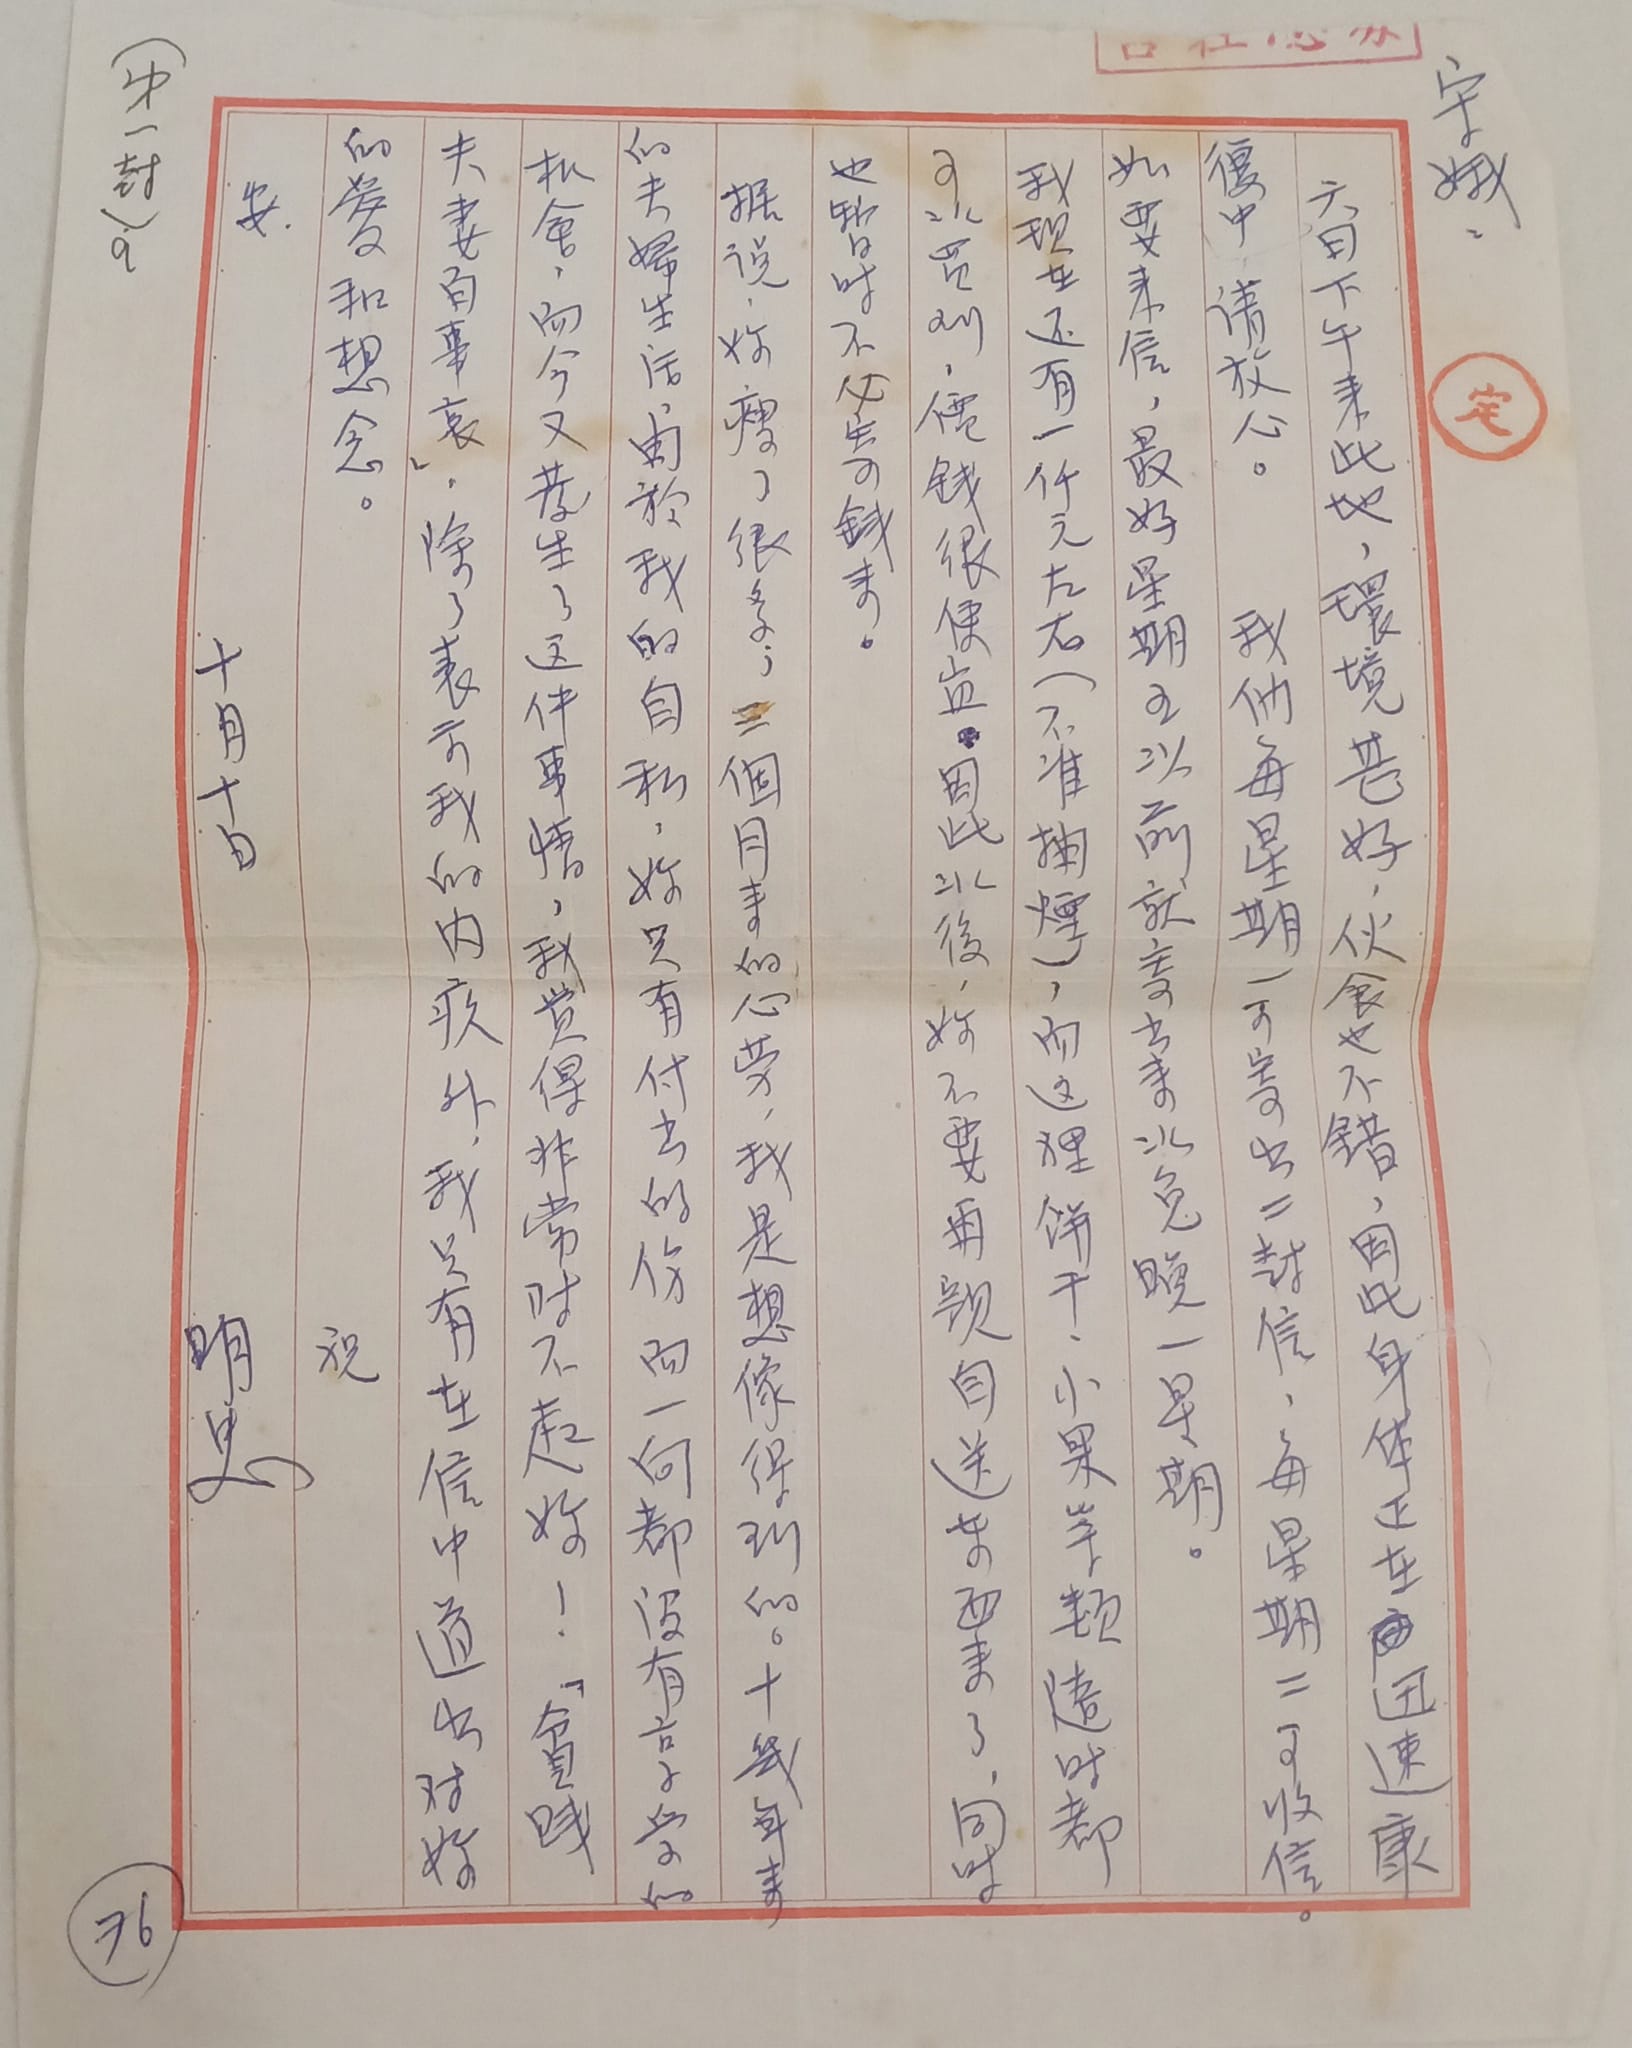 宇娥、
六日下午来此地，環境甚好，伙食也不錯，因此身体正在迅速康
復中，請放心。　我們每星期一可寄出二封信，每星期二可收信。
如要来信，最好星期五以前就寄出来以免晚一星期。
我現在还有一仟元左右（不准抽煙），而这裡餅干、小果羊類隨时都
可以買到，價錢很便宜．因此以後，妳不要再親自送东西来了，同时
也暫时不必寄錢来。
据说，妳瘦了很多；二個月来的心勞，我是想像得到的。十幾年来
的夫婦生活，由於我的自私，妳只有付出的份而一向都没有享受的
机會，而今又發生了这件事情，我覚得非常对不起妳！「貧賤
夫妻百事哀」．除了表示我的内疚外，我只有在信中道出对妳
的愛和想念。
祝
安．
十月十日
明
（第一封）
36
定